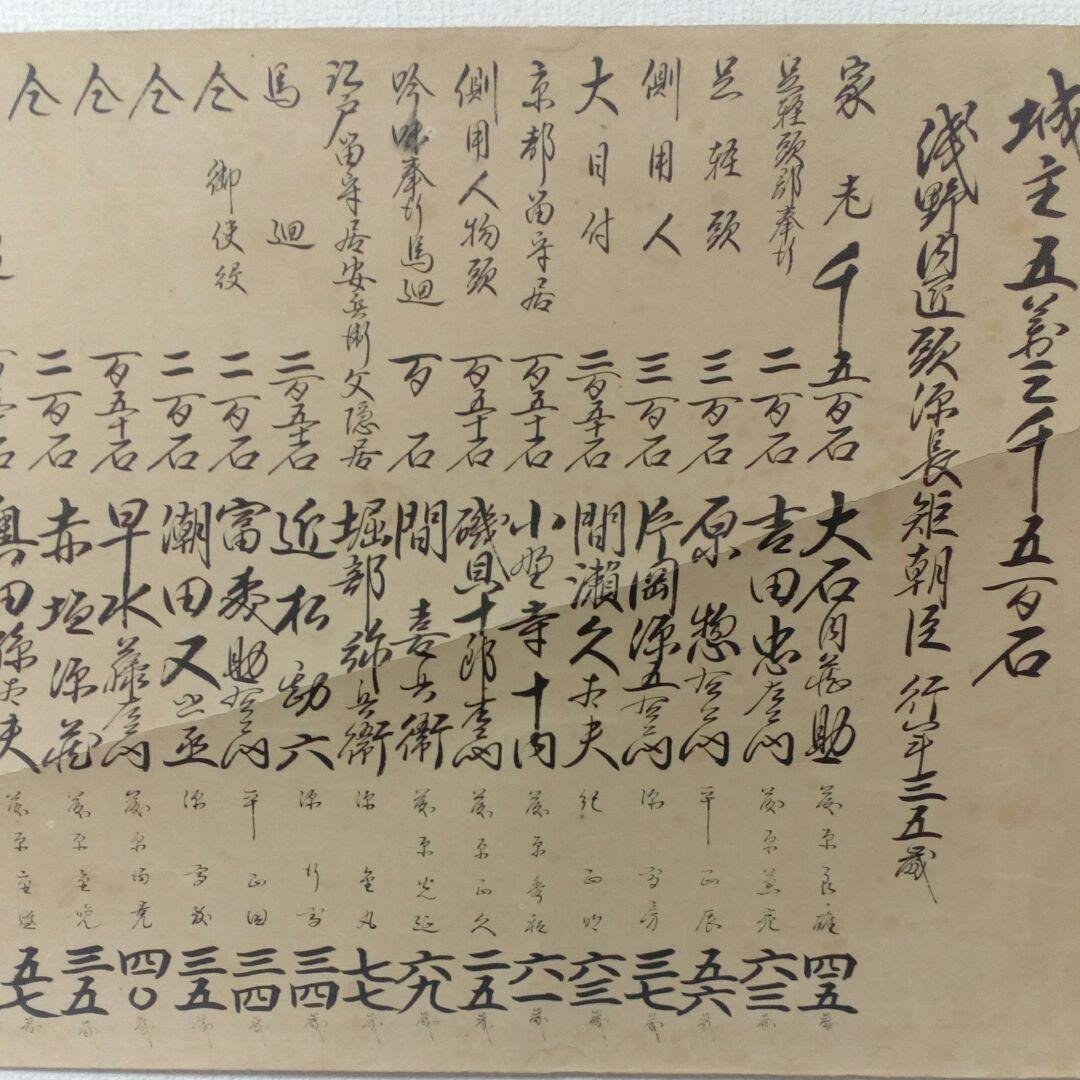 城主 五萬三千五百石
浅野内匠頭源長矩朝臣 行年三五歳
家老 千五百石 大石内蔵助 藤原良雄 四五歳
足軽頭郡奉行 二百石 吉田忠左衛門 藤原兼亮 六三歳
足軽頭 三百石 原惣右衛門 平正辰 五六歳
側用人 三百石 片岡源五右衛門 源高房 三七歳
大目付 二百五十石 間瀬久太夫 紀正明 六三歳
京都留守居 百五十石 小野寺十内 藤原秀和 六一歳
側用人物頭 百五十石 磯貝十郎左衛門 藤原正久 二五歳
吟味奉行馬廻 百石 間喜兵衛 藤原光延 六九歳
江戸留守居安兵衛父隠居 堀部弥兵衛 源金丸 七七歳
馬廻 二百五十石 近松勘六 源行高 三四歳
仝 御使役 二百石 富森助右衛門 平正因 三四歳
仝 二百石 潮田又之丞 源高教 三五歳
仝 百五十石 早水藤左衛門 藤原満尭 四〇歳
仝 二百石 赤垣源蔵 藤原重 三五歳
仝 百五十石 奥田孫太夫 藤原重盛 五七歳